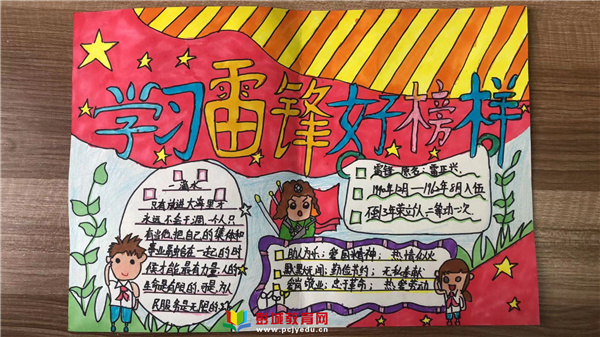 学习雷锋好榜样
一滴水
只有放进大海里才
永远不会干涸,一个人只
有当他把自己的集体和
事业融合在一起的时
候才能最有力量,人的
生命是有限的,可是,为人
民服务是无限的
雷锋 原名:雷正兴
1940年12月—1962年8月入伍
3年荣立二等功一次
助人为乐;爱国精神;热情似火
默默无闻;勤俭节约;无私奉献
敬业;忠于革命;热爱劳动
教育网
www.pcjyedu.cn